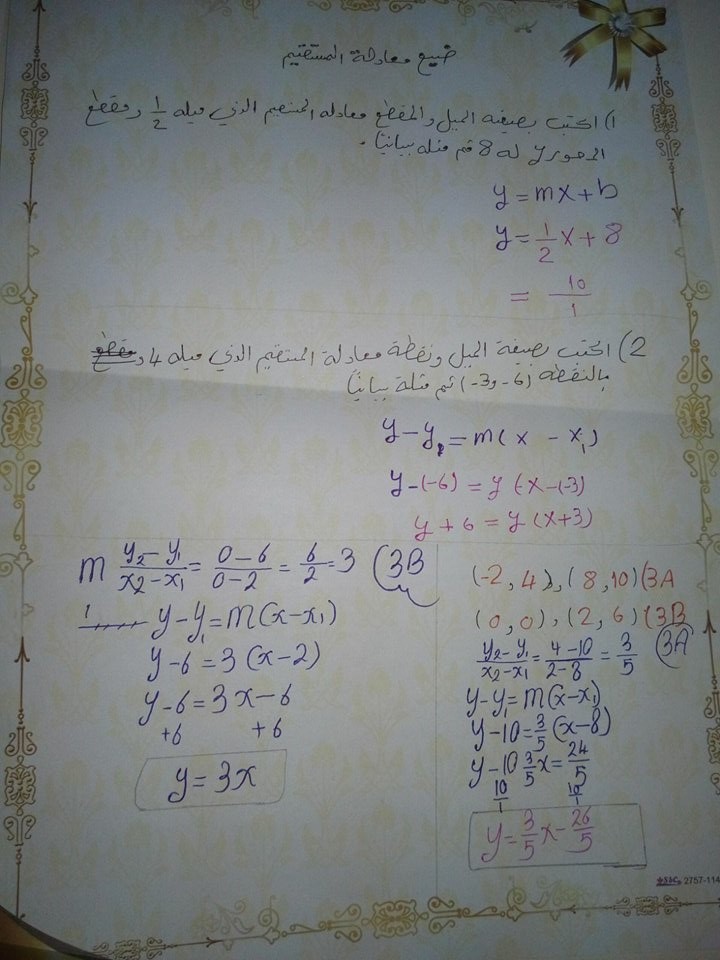 ضيع معادلة المستقيم
1) اكتب بصيغة الميل والمقطع معادله المستقيم الذي ميله 1/2 ومقطع
المحور y له 8 ثم مثله بيانيًا.
y = mx + b
y = 1/2 x + 8
= 10/1
2) اكتب بصيغة الميل ونقطة معادلة المستقيم الذي ميله 4 و
بالنقطه (-3و -6) ثم مثلة بيانيًا
y - y₁ = m( x - x₁)
y-(-6) = y (-x-(-3)
y + 6 = y (x+3)
m y₂-y₁/x₂-x₁ = 0-6/0-2 = 6/2 = 3 (3B
y-y₁ = m(x-x₁)
y-6 = 3 (x-2)
y-6 = 3x-6
+6 +6
y = 3x
(-2, 4), (8,10)(3A
(0,0), (2, 6) (3B
y₂-y₁/x₂-x₁ = 4-10/2-8 = 3/5 (3A
y-y₁ = m(x-x₁)
y-10 = 3/5 (x-8)
y-10 3/5 x = 24/5
10/1 10/1
y = 3/5 x - 26/5
SSC 2757-114